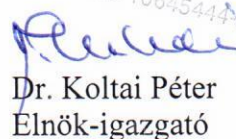 Dr. Koltai Péter
Elnök-igazgató